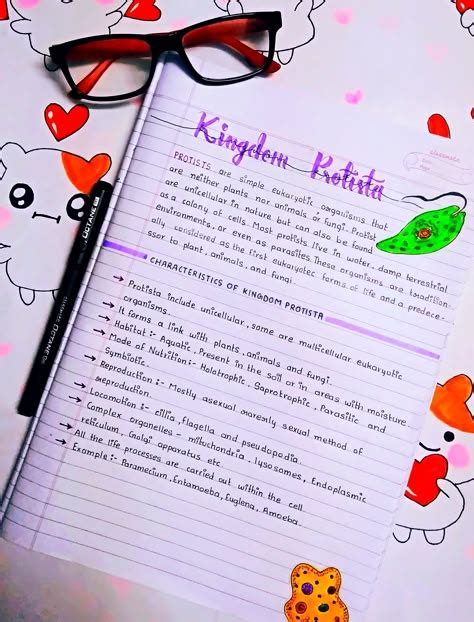 Kingdom Protista
classmate
Date
Page
PROTISTS are simple eukaryotic organisms that
are neither plants nor animals or fungi. Protist
are unicellular in nature but can also be found
as a colony of cells. Most protists live in water, damp terrestrial
environments, or even as parasites. These organisms are tradition-
ally considered as the first eukaryotic forms of life and a predece-
ssor to plant, animals, and fungi
CHARACTERISTICS OF KINGDOM PROTISTA
→ Protista include unicellular, some are multicellular eukaryotic
organisms.
→ It forms a link with plants, animals and fungi.
→ Habitat :- Aquatic, Present in the soil or in areas with moisture.
→ Mode of Nutrition:- Holotrophic, Saprotrophic, Parasitic and
Symbiotic.
→ Reproduction :- Mostly asexual rarely sexual method of
reproduction.
→ Locomotion :- cillia, flagella and pseudopodia.
→ Complex organelles - mitochondria, lysosomes, Endoplasmic
reticulum, Golgi apparatus etc.
→ All the life processes are carried out within the cell.
→ Example :- Paramecium, Entamoeba, Euglena, Amoeba.
OCTANE
OCTANE